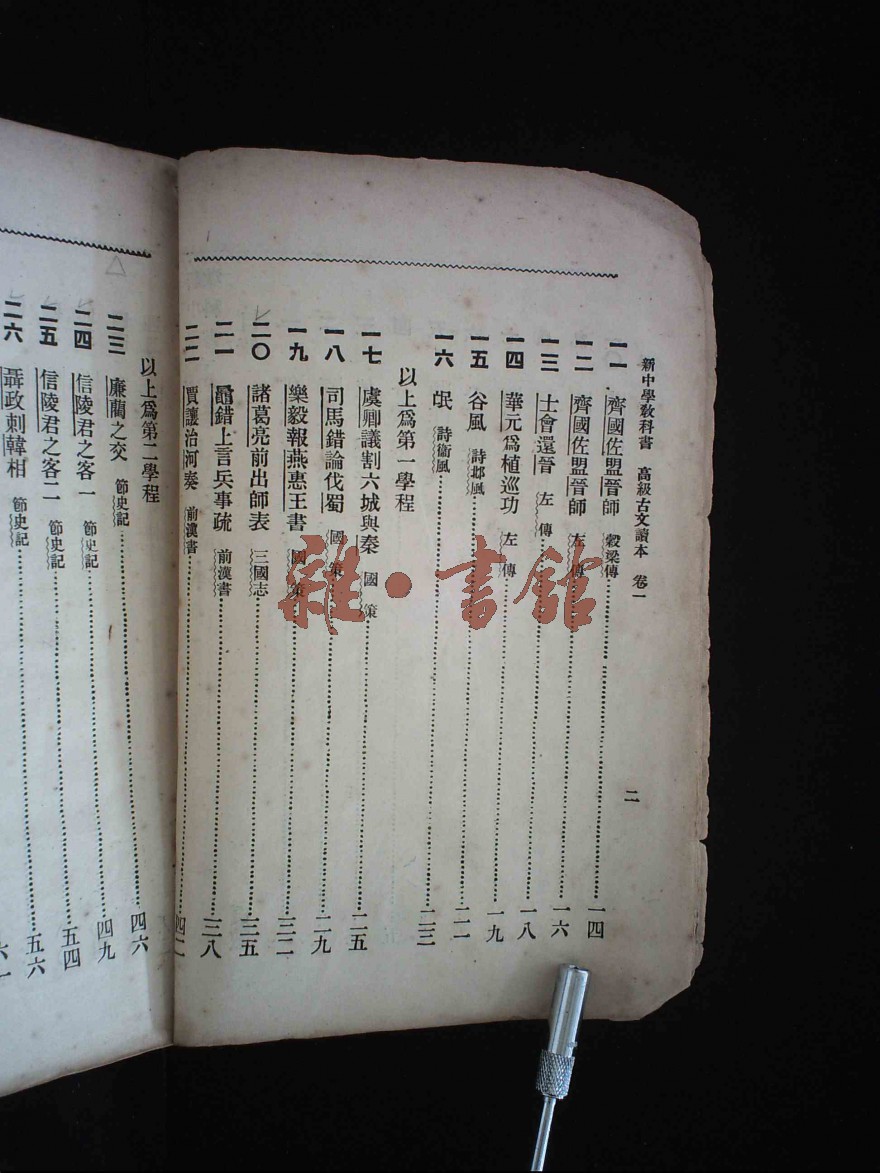 新中學教科書 高級古文讀本 卷一 二
一一 齊國佐盟晉師 穀梁傳 一四
一二 齊國佐盟晉師 左傳 一六
一三 士會還晉 左傳 一八
一四 華元爲植巡功 左傳 一九
一五 谷風 詩邶風 二一
一六 氓 詩衞風 二三
以上爲第一學程
一七 虞卿議割六城與秦 國策 二五
一八 司馬錯論伐蜀 國策 二九
一九 樂毅報燕惠王書 國策 三二
二〇 諸葛亮前出師表 三國志 三五
二一 鼂錯上言兵事疏 前漢書 三八
二二 賈讓治河奏 前漢書 四二
以上爲第二學程
二三 廉藺之交 節史記 四六
二四 信陵君之客一 節史記 四九
二五 信陵君之客二 節史記 五四
二六 聶政刺韓相 節史記 五六
雜·書館